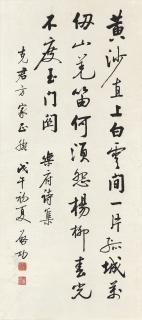 黄沙直上白雲间一片孤城萬
仞山羌笛何須怨楊柳春光
不度玉门関 樂府诗集
克君方家正 戊午初夏 啟功